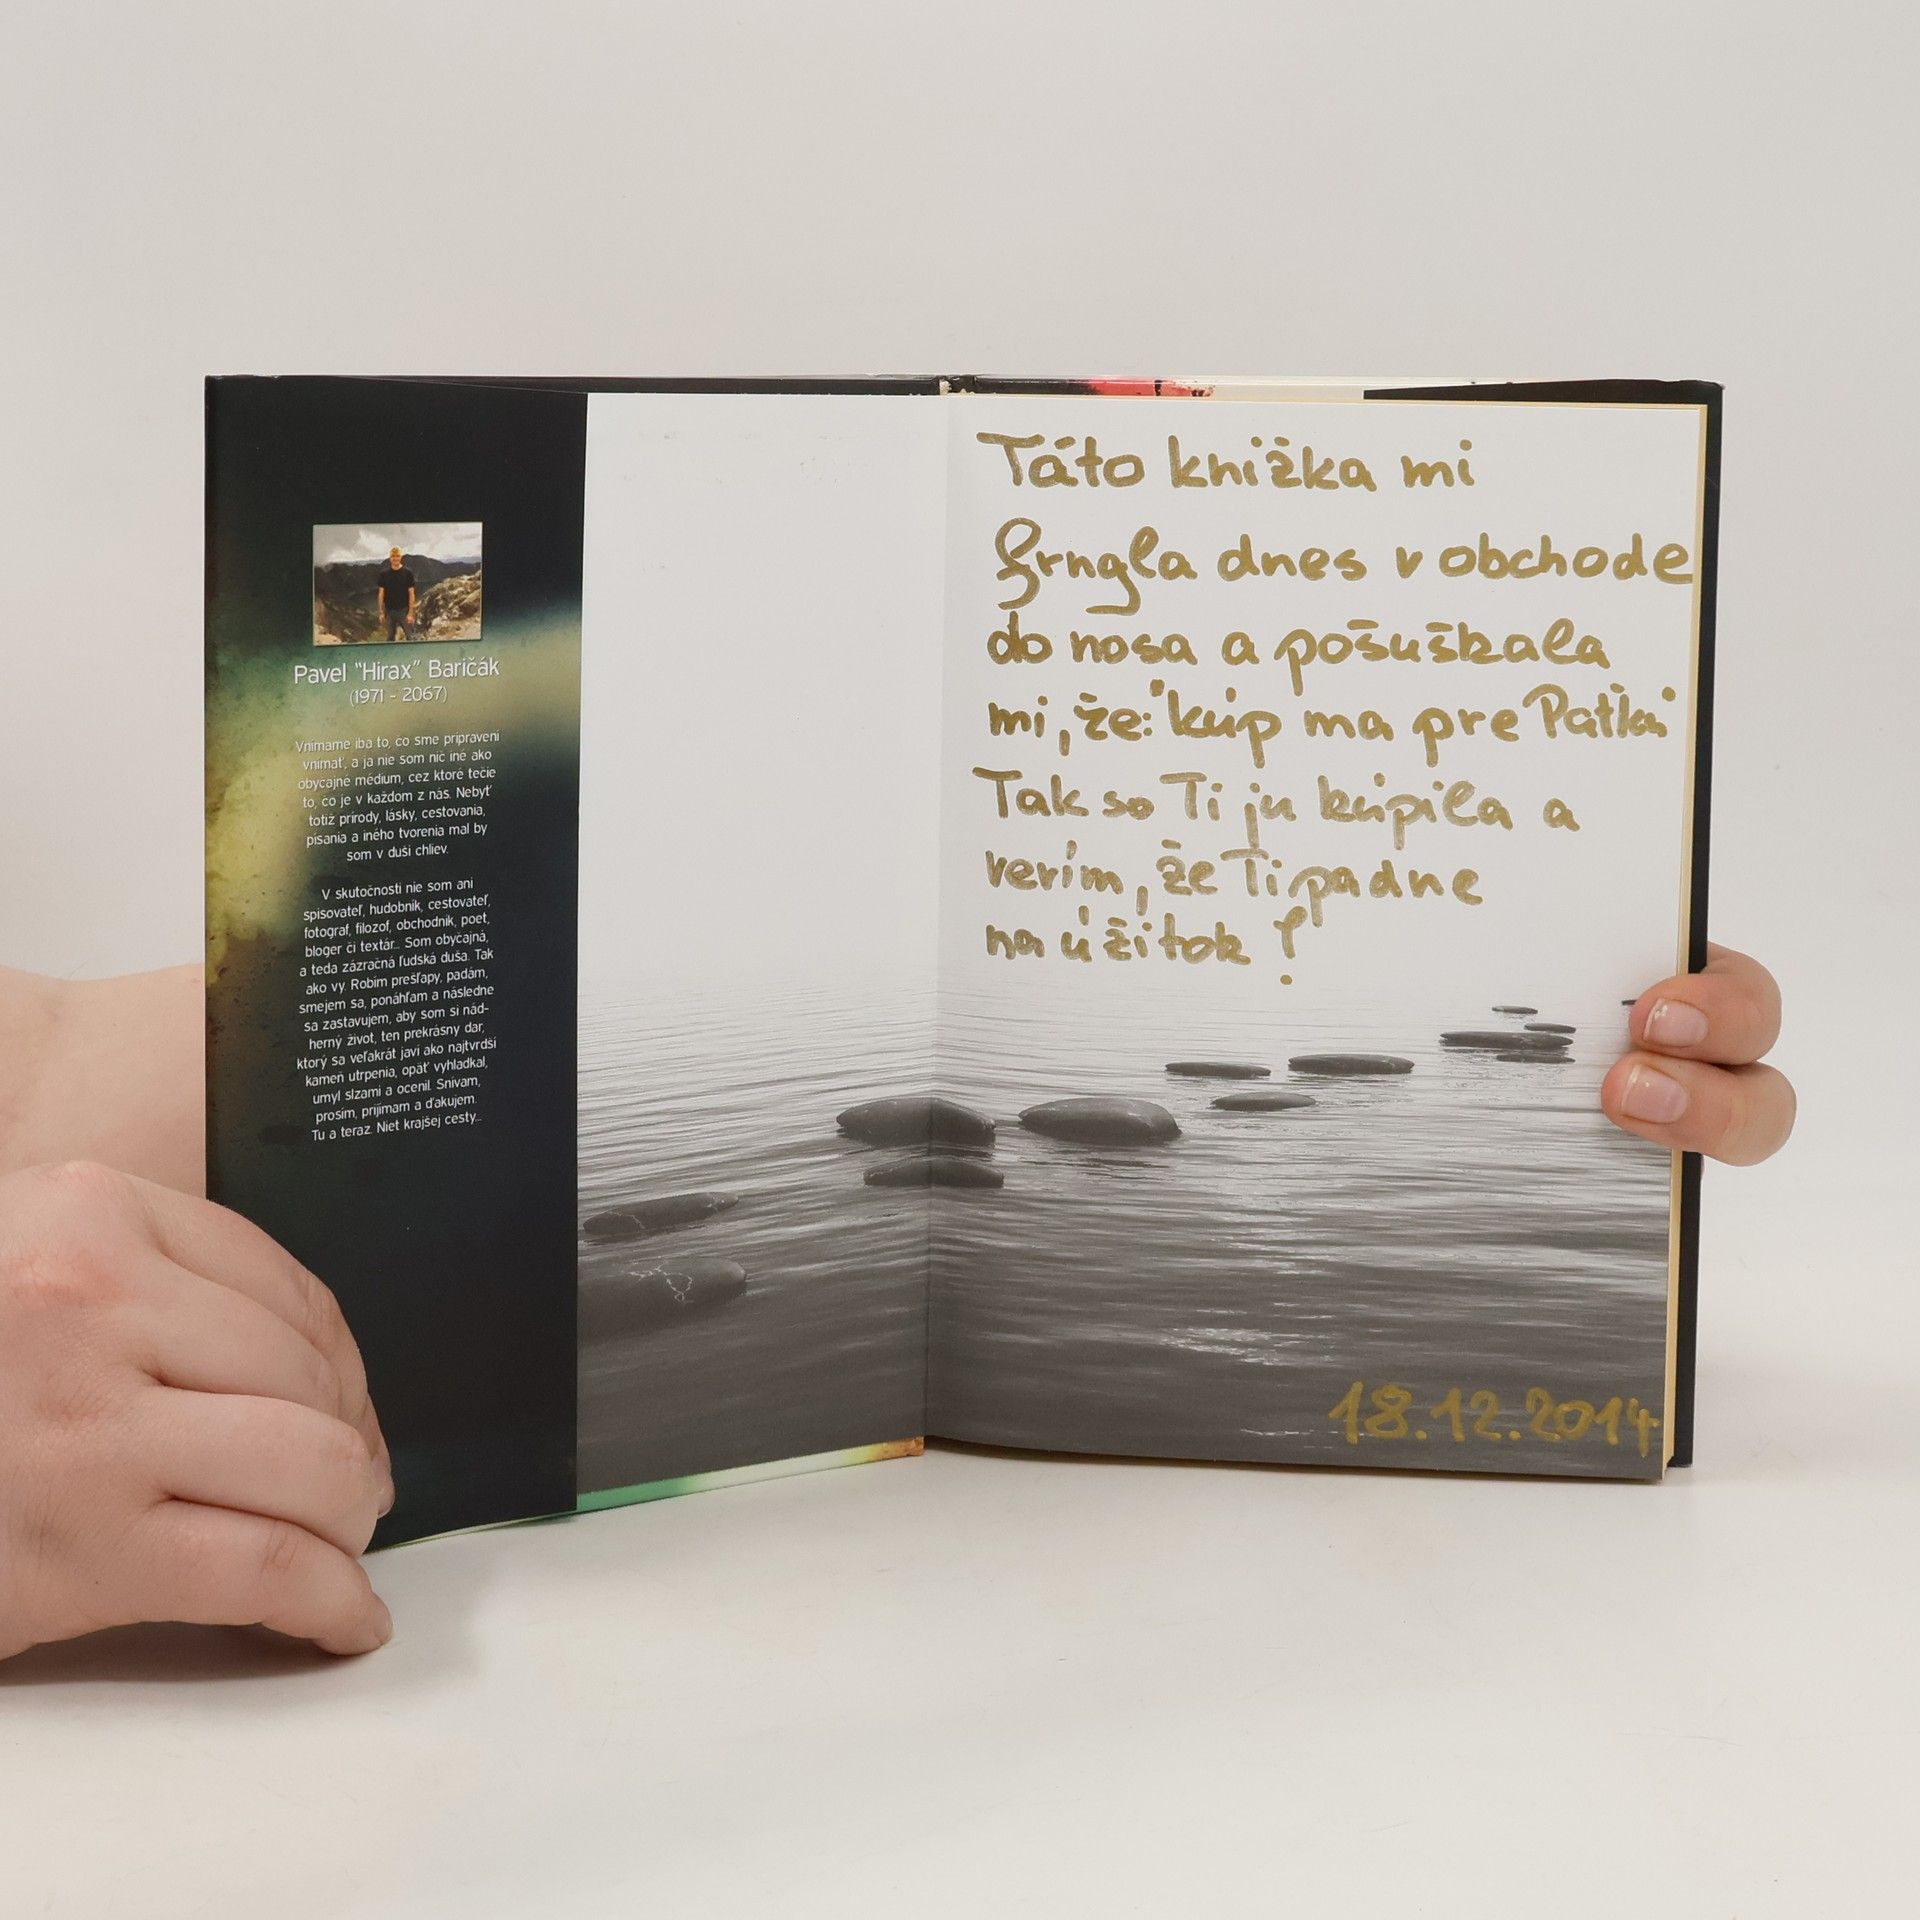 Pavel "Hirax" Baričák
(1971 - 2067)
Vnímame iba to, čo sme pripravení
vnímať, a ja nie som nič iné ako
obyčajné médium, cez ktoré tečie
to, čo je v každom z nás. Nebyť
totiž prírody, lásky, cestovania,
písania a iného tvorenia mal by
som v duši chliev.
V skutočnosti nie som ani
spisovateľ, hudobník, cestovateľ,
fotograf, filozof, obchodník, poet,
bloger či textár... Som obyčajná,
a teda zázračná ľudská duša. Tak
ako vy. Robím prešľapy, padám,
smejem sa, ponáhľam a následne
sa zastavujem, aby som si nád-
herný život, ten prekrásny dar,
ktorý sa veľakrát javí ako najtvrdší
kameň utrpenia, opäť vyhladkal,
umyl slzami a ocenil. Snívam,
prosím, prijímam a ďakujem.
Tu a teraz. Niet krajšej cesty...
Táto knižka mi
frngla dnes v obchode
do nosa a pošuškala
mi, že: "kúp ma pre Paťku"
Tak so Ti ju kúpila a
verím, že Ti padne
na úžitok !
18.12.2014